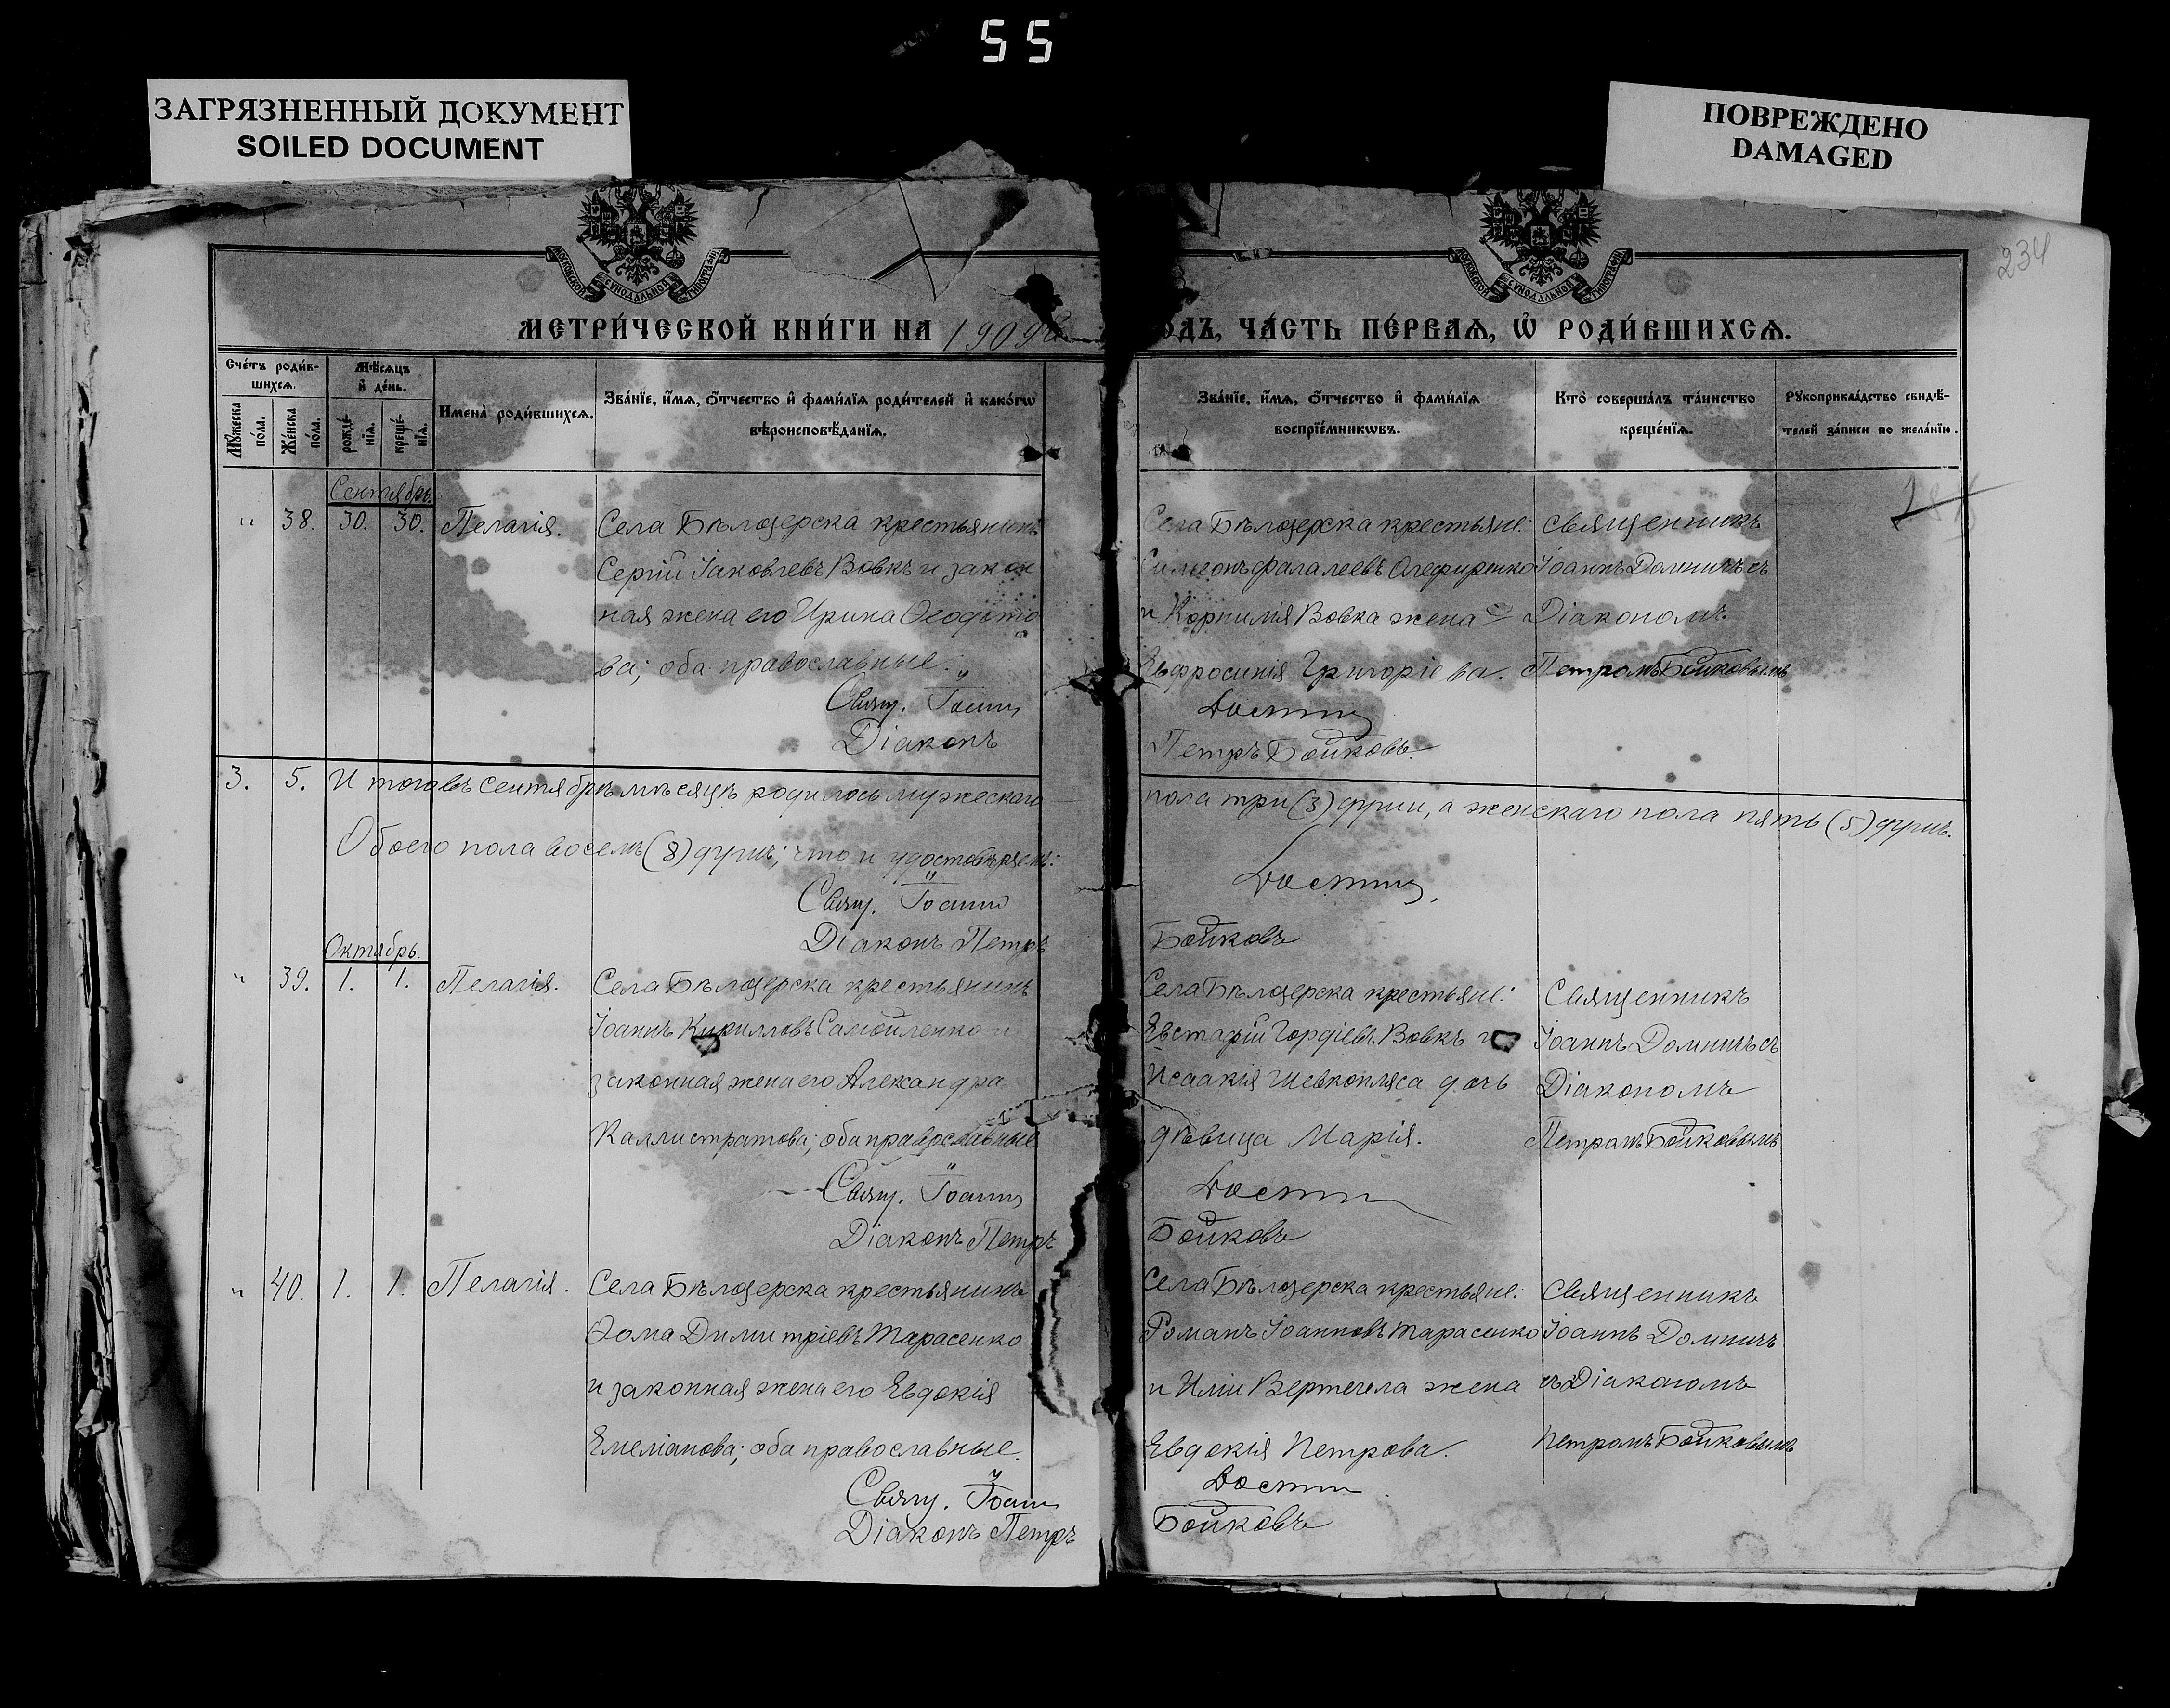 55
ЗАГРЯЗНЕННЫЙ ДОКУМЕНТ
SOILED DOCUMENT
ПОВРЕЖДЕНО
DAMAGED
234
МОСКОВСКОЙ СѴНОДАЛЬНОЙ ТИПОГРАФІИ
МОСКОВСКОЙ СѴНОДАЛЬНОЙ ТИПОГРАФІИ
МЕТРИ́ЧЕСКОЙ КНИ́ГИ НА 1909й
ОДЪ, ЧА́СТЬ ПЕ́РВАѦ, Ѡ҆ РОДИ́ВШИХСѦ.
Сче́тъ роди́в-
шихсѧ.
Мѣ́сѧцъ
и҆ де́нь.
Мꙋ́жеска по́ла.
Же́нска по́ла.
рожде́-
нїѧ.
креще́-
нїѧ.
Имена̀ роди́вшихсѧ.
Зва́нїе, и҆́мѧ, ѻ҆́тчество и҆ фами́лїѧ роди́телей и҆ како́гѡ
вѣроисповѣ́данїѧ.
Зва́нїе, и҆́мѧ, ѻ҆́тчество и҆ фами́лїѧ
воспрїе́мникѡвъ.
Кто̀ соверша́лъ та́инство
креще́нїѧ.
Рꙋкоприкла́дство свидѣ́-
телей за́писи по жела́нїю.
Сентябрь.
" 38. 30. 30. Пелагія. Села Бѣлозерска крестьянинъ
Сергій Іаковлевъ Вовкъ и закон
ная жена его Ирина Ѳеодото
ва; оба православные.
Свящ. Іоаннъ
Діаконъ
Села Бѣлозерска крестьяне:
Симеонъ Фалалеевъ Олефиренко
и Корнилія Вовка жена
Евфросинія Григоріева.
Петръ Бойковъ.
Священникъ
Іоаннъ Домничъ съ
Діакономъ
Петромъ Бойковымъ
3. 5. Итого въ Сентябрѣ мѣсяцѣ родилось мужескаго
пола три (3) души, а женскаго пола пять (5) душъ.
Обоего пола восемь (8) душъ; что и удостовѣряемъ:
Свящ. Іоаннъ
Діаконъ Петръ
Бойковъ
Октябрь.
" 39. 1. 1. Пелагія. Села Бѣлозерска крестьянинъ
Іоаннъ Кирилловъ Самойленко и
законная жена его Александра
Каллистратова; оба православные
Свящ. Іоаннъ
Діаконъ Петръ
Села Бѣлозерска крестьяне:
Евстафій Гордіевъ Вовкъ и
Исаакія Шевкопляса дочь
дѣвица Марія.
Бойковъ
Священникъ
Іоаннъ Домничъ съ
Діакономъ
Петромъ Бойковымъ
" 40. 1. 1. Пелагія. Села Бѣлозерска крестьянинъ
Ѳома Димитріевъ Тарасенко
и законная жена его Евдокія
Емеліанова; оба православные.
Свящ. Іоаннъ
Діаконъ Петръ
Села Бѣлозерска крестьяне:
Романъ Іоанновъ Тарасенко
и Иліи Вертегела жена
Евдокія Петрова.
Бойковъ
Священникъ
Іоаннъ Домничъ
съ Діакономъ
Петромъ Бойковымъ